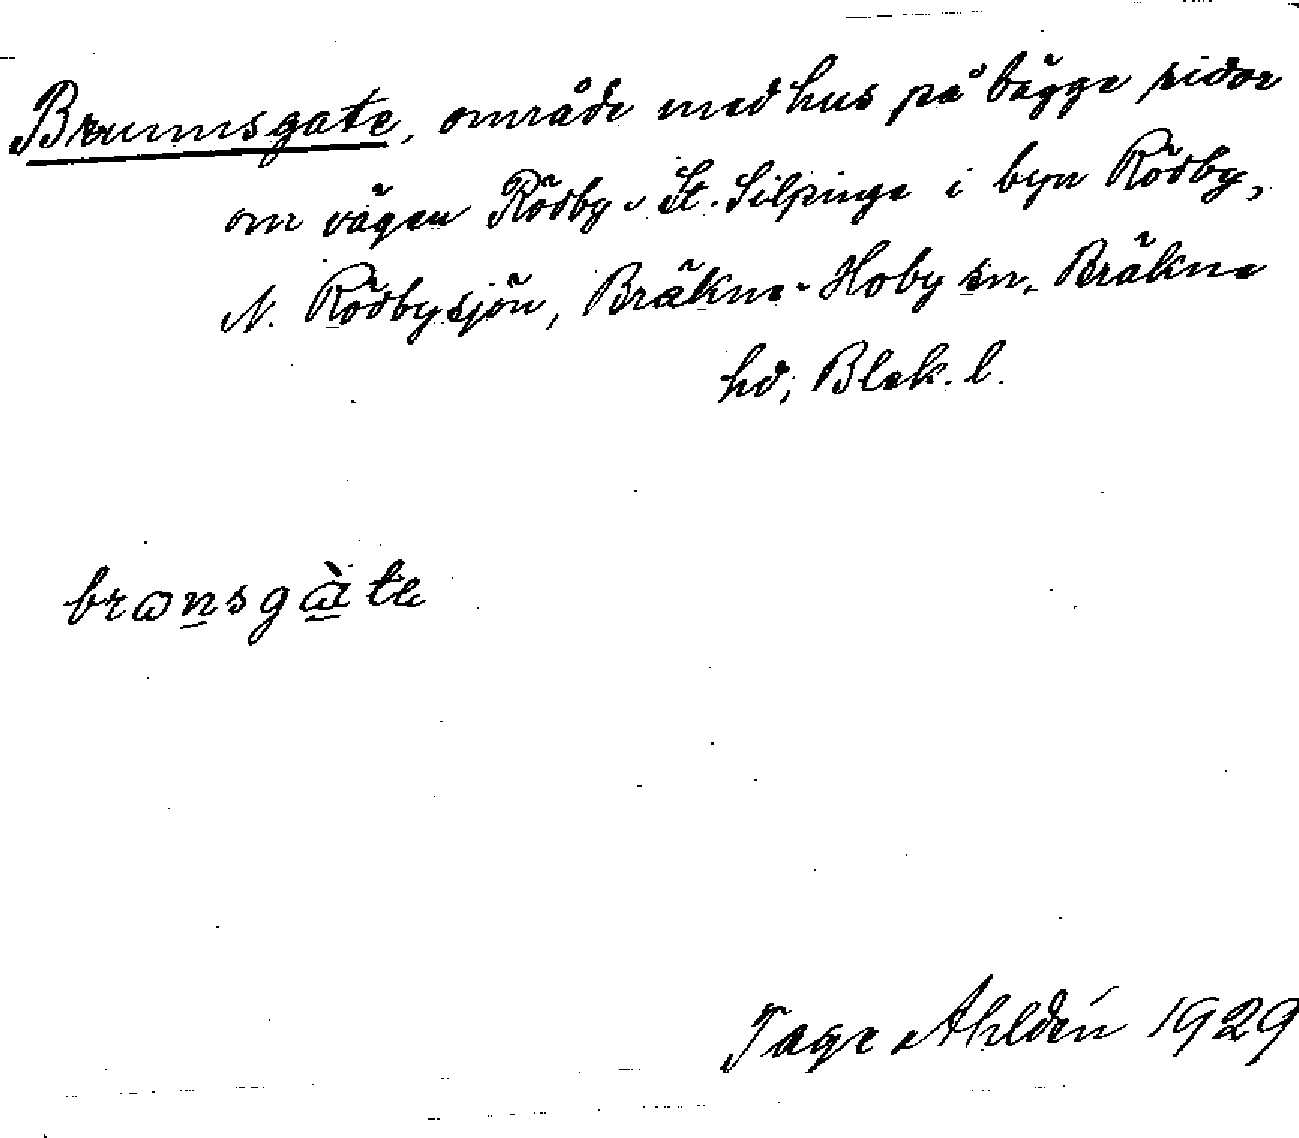 Brunnsgate, område med hus på bägge sidor
om vägen Rödby - St. Silpinge i byn Rödby,
N. Rödbysjön, Bräkne-Hoby sn. Bräkne
hd, Blek. l.
Tage Ahldén 1929